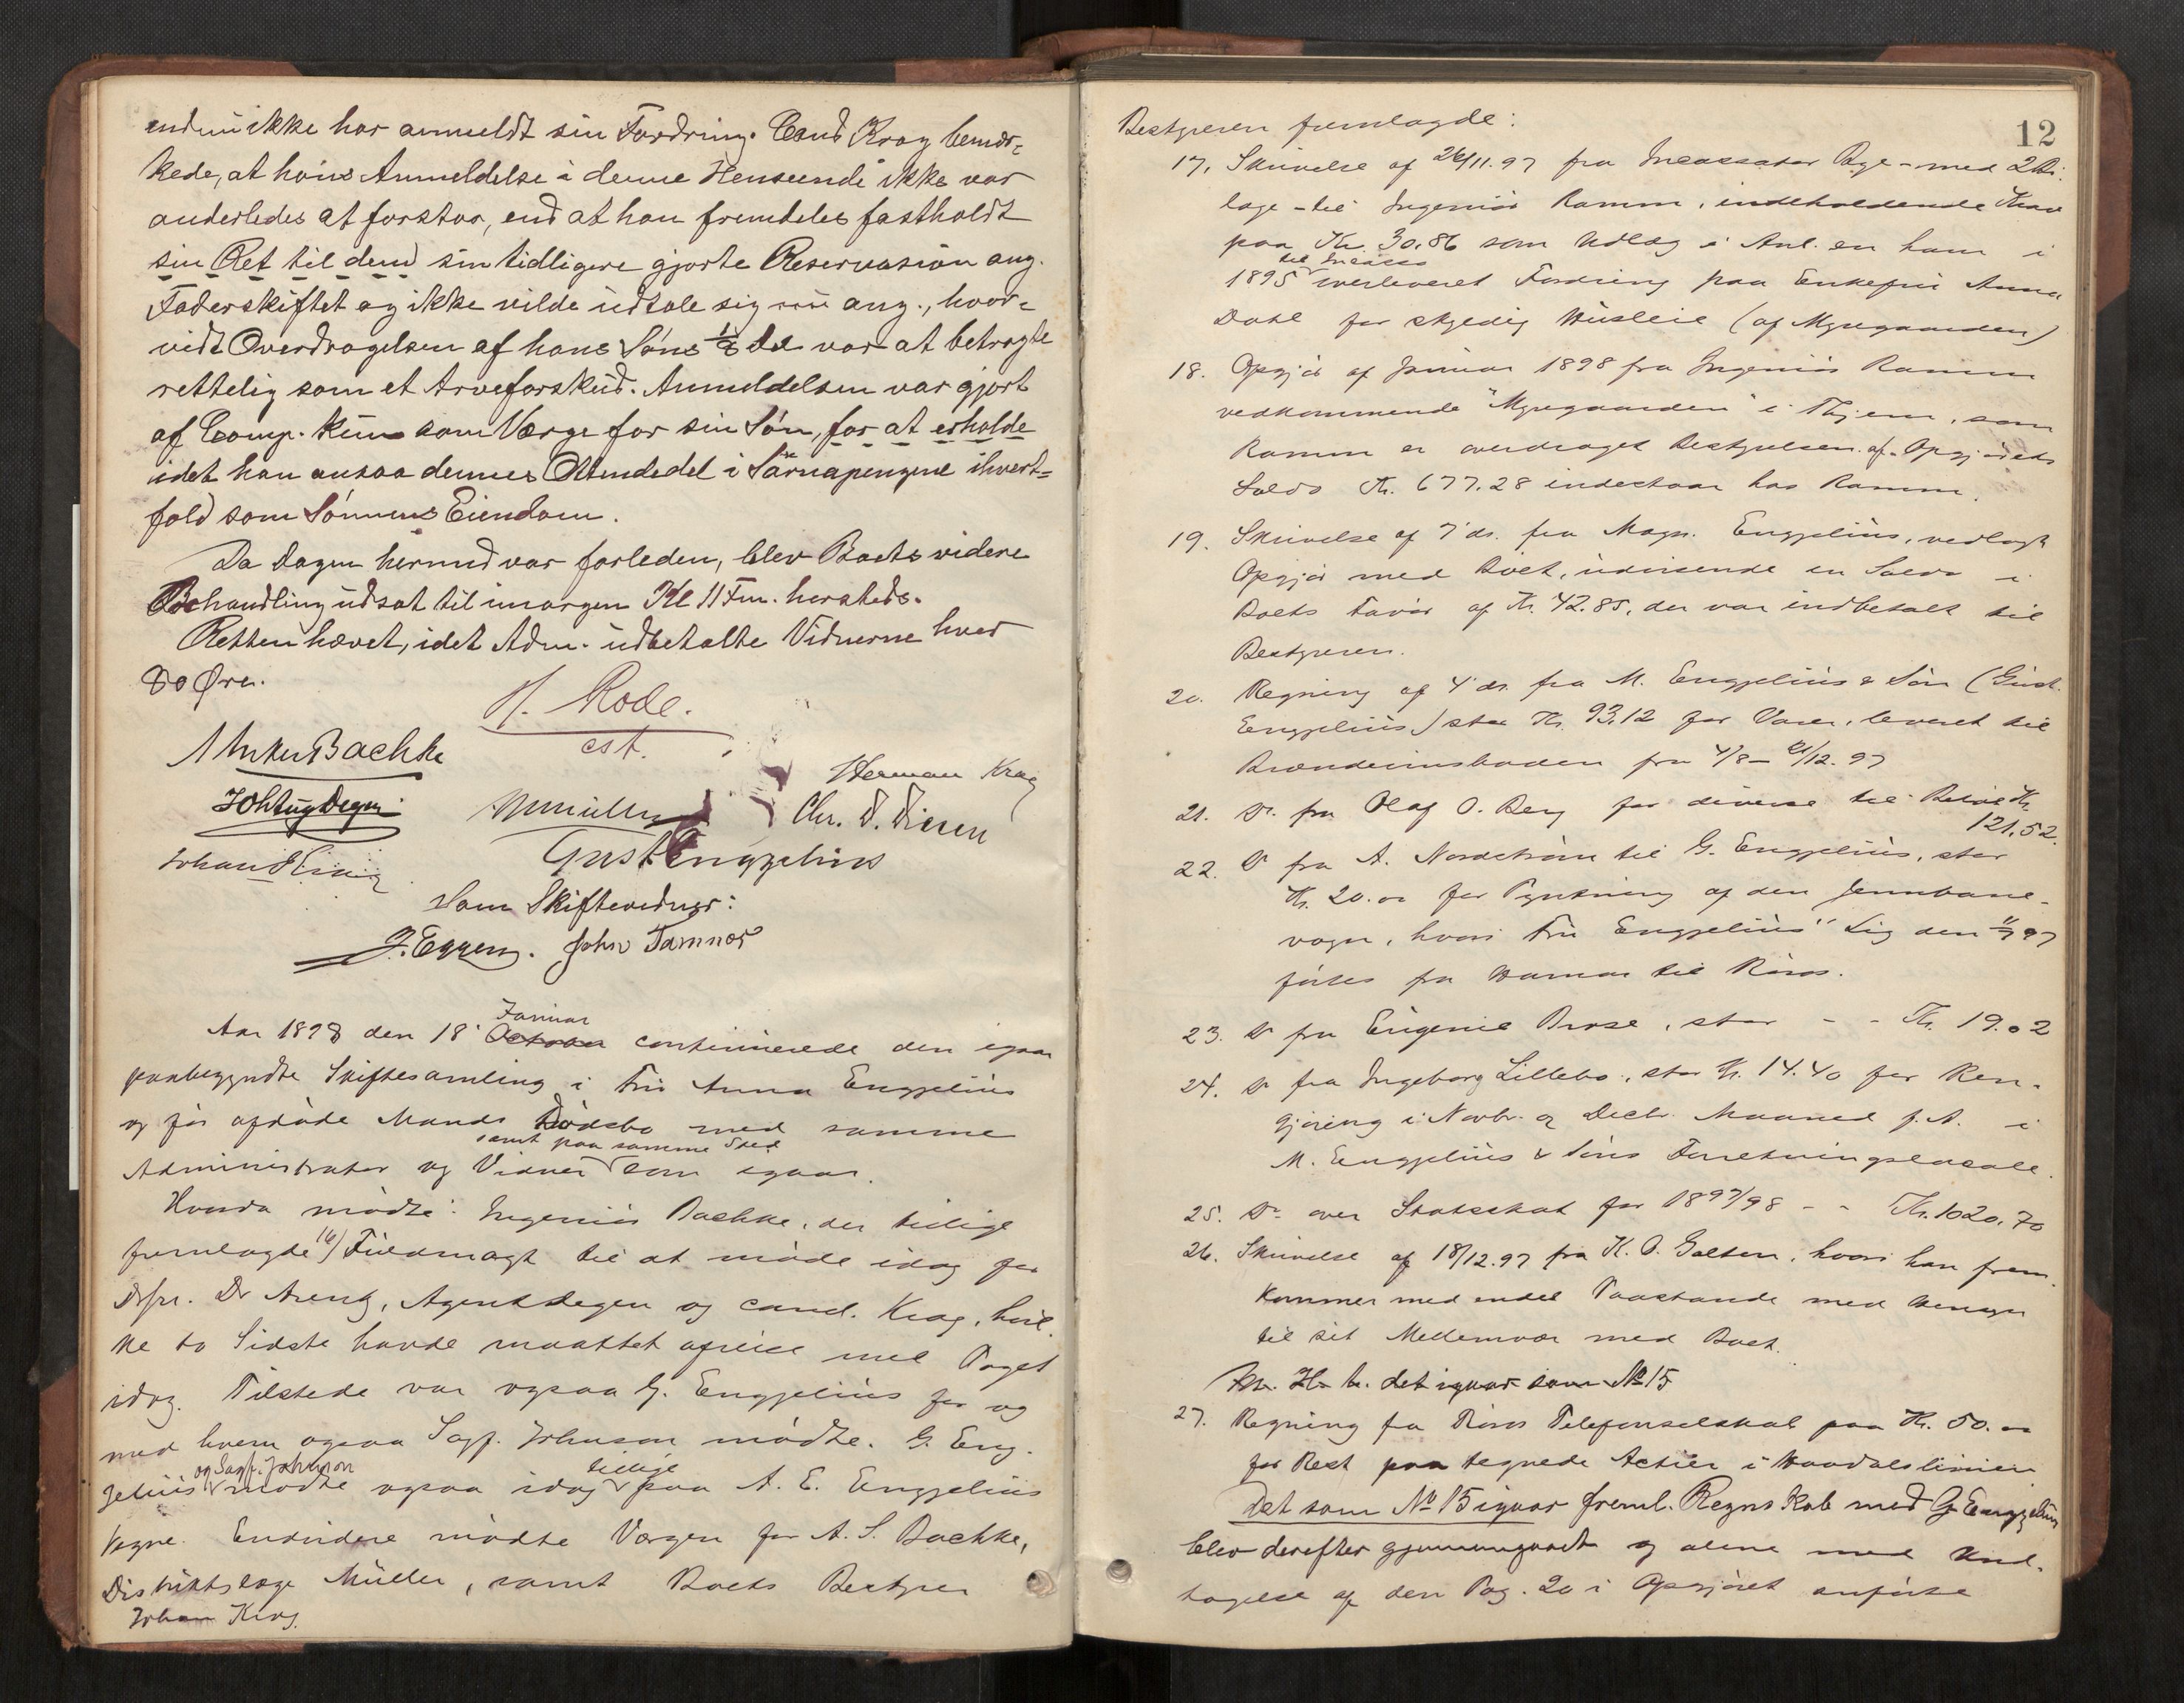 endnu ikke har anmeldt sin Fordring. Cand Krag bemær-
kede, at hans Anmeldelse i denne Henseende ikke var
anderledes at forstaa, end at han fremdeles fastholdt
sin Ret til den sin tidligere gjorte Reservasion ang.
Faderskiftet og ikke vilde udtale sig nu ang., hvor-
vidt Overdragelsen af hans Søns 1/8 Del var at betragte
rettelig som et Arveforskud. Anmeldelsen var gjort
af Comp. kun som Værge for sin Søn, for at erholde
idet han ansaa dennes Ottendedel i Särnapengene ihvert-
fald som Sønnens Eiendom.
Da Dagen hermed var forleden, blev Boets videre
Behandling udsat til imorgen Kl 11 Fm. hersteds.
Retten hævet, idet Adm. udbetalte Vidnerne hver
80 Øre.
H. Rode.
cst.
Anker Bachke
Herman Krag
Joh Aug Degen
Müller
Chr. D. Diesen
Gust Engzelius
Johan Krag
Som Skiftevidner:
J. Eggen. John Tamnes
Januar
Aar 1898 den 18' October continuerede den igaar
paabegyndte Skiftesamling i Fru Anna Engzelius
og før afdøde Mands Dødsbo med samme
samt paa samme Sted
Administrator og Vidner som igaar.
Hvorda mødte: Ingeniør Bachke, der tillige
fremlagde 16) Fuldmagt til at møde idag for
Dr Arentz, Agent Degen og cand. Krag, hvil-
ke to Sidste havde maattet afreise med Toget
idag. Tilstede var ogsaa G. Engzelius for og
med hvem ogsaa Sagf. Johnson mødte. G. Eng-
og Sagf. Johnson tillige
zelius mødte ogsaa idag paa A. E. Engzelius
Vegne. Endvidere mødte Værgen for A. S. Bachke,
Distriktslæge Müller, samt Boets Bestyrer
Johan Krag.
12
Bestyreren fremlagde:
17. Skrivelse af 26/11.97 fra Incassator Page - med 2 Bi-
lage - til Ingeniør Ramm, indeholdende Krav
paa Kr. 30.86 som Udlæg i Anl. en ham i
til Incasso
1895 overleveret Fordring paa Enkefru Anna
Dahl for skyldig Husleie (af Myregaarden)
18. Opgjør af Januar 1898 fra Ingeniør Ramm
vedkommende "Myregaarden" i Thjem, som
Ramm er overdraget Bestyrelsen af. Opgjørets
Saldo Kr. 677.28 indestaar hos Ramm.
19. Skrivelse af 7' ds. fra Magn. Engzelius, vedlagt
Opgjør med Boet, udvisende en Saldo i
Boets Favør af Kr. 42.85, der var indbetalt til
Bestyreren.
20. Regning af 4' ds. fra M. Engzelius & Søn (Gust.
Engzelius) stor Kr. 93.12 for Varer, leveret til
Brændevinsboden fra 4/8 - 21/12.97
21. Do fra Olaf O. Berg for diverse til Boet Kr.
121.52.
22. Do fra A. Nordstrøm til G. Engzelius, stor
Kr. 20.00 for Pyntning af den Jernbane-
vogn, hvori Fru Engzelius' Lig den 11/7 97
førtes fra Hamar til Røros.
23. Do fra Eugenie Brose, stor - - Kr. 19.02
24. Do fra Ingeborg Lillebo, stor Kr. 14.40 for Ren-
gjøring i Novbr. og Decbr. Maaned f. A. i
M. Engzelius & Søns Forretningslocale.
25. Do over Statsskat for 1897/98 - - Kr. 1020.70
26. Skrivelse af 18/12.97 fra K. O. Galten, hvori han frem-
kommer med endel Paastande med Hensyn
til sit Mellemvær med Boet.
det igaar som No 15
27. Regning fra Røros Telefonselskab paa Kr. 50.00
for Rest paa tegnede Actier i Haadalslinien
Det som No 15 igaar freml. Regnskab med G Engzelius
blev derefter gjennemgaaet og alene med Und-
tagelse af den Pag. 20 i Opgjøret anførte